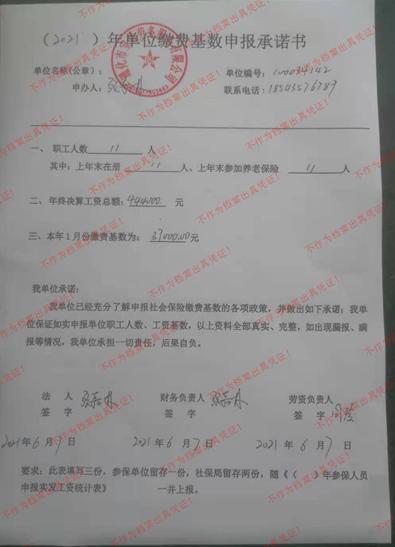 （2021）年单位缴费基数申报承诺书
单位名称(公章)： 单位编号：
申办人： 联系电话：
一、 职工人数 11 人
其中：上年末在册 11 人、上年末参加养老保险 11 人
二、年终决算工资总额：444000 元
三、本年1月份缴费基数为：37000.00元
我单位承诺：
我单位已经充分了解申报社会保险缴费基数的各项政策，并做出如下承诺：我单
位保证如实申报单位职工人数、工资基数，以上资料全部真实、完整，如出现漏报、瞒
报等情况，我单位承担一切责任，后果自负。
法 人 财务负责人 劳资负责人
签 字 签 字 签 字
2021年6月7日 2021年6月7日 2021年6月7日
要求：此表填写三份，参保单位留存一份，社保局留存两份，随《（ ）年参保人员
申报实发工资统计表》 一并上报。
不作为档案出具凭证！